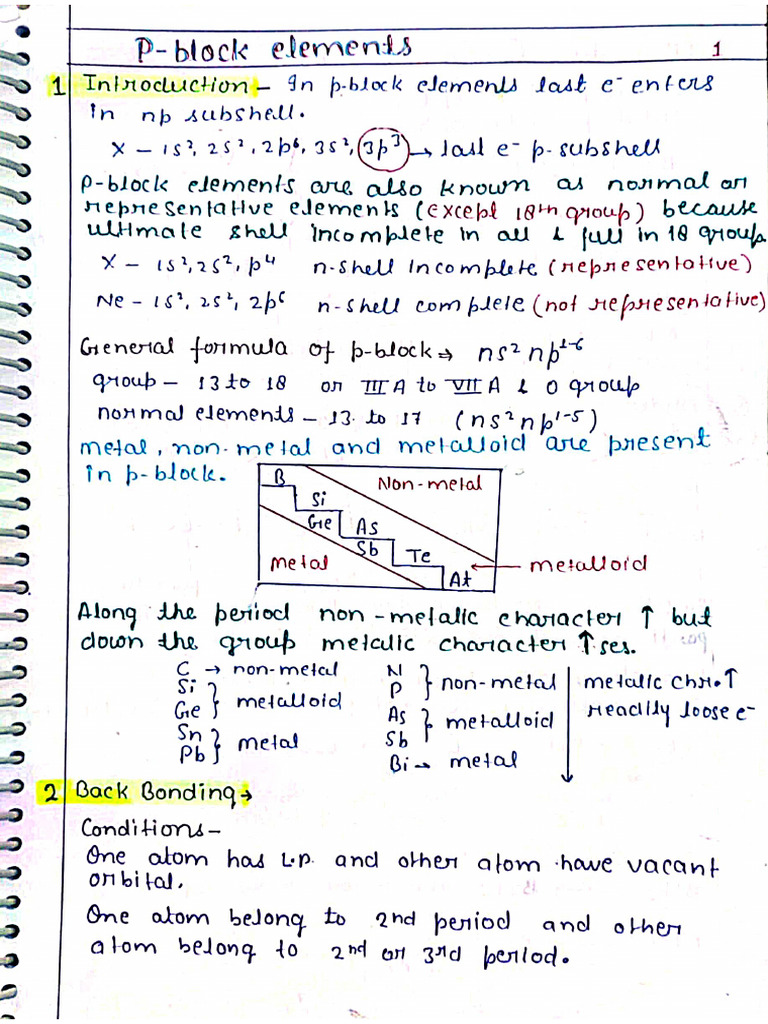 P-block elements 1
1 Introduction - In p-block elements last e⁻ enters
in np subshell.
X - 1s², 2s², 2p⁶, 3s², 3p³ → last e⁻ p-subshell
P-block elements are also known as normal or
representative elements (except 18th group) because
ultimate shell incomplete in all & full in 18 group
X - 1s², 2s², p⁴ n-shell incomplete (representative)
Ne - 1s², 2s², 2p⁶ n-shell complete (not representative)
General formula of p-block → ns² np¹⁻⁶
group - 13 to 18 or III A to VII A & 0 group
normal elements - 13 to 17 (ns² np¹⁻⁵)
metal, non-metal and metalloid are present
in p-block.
B Non-metal
Si
Ge As
Sb Te
metal ← metalloid
At
Along the period non-metalic character ↑ but
down the group metalic character ↑ses.
C → non-metal
Si } metalloid
Ge
Sn } metal
Pb
N } non-metal
P
As } metalloid
Sb
Bi → metal
metalic chr. ↑
readily loose e⁻
2 Back Bonding →
Conditions -
One atom has L.P. and other atom have vacant
orbital.
One atom belong to 2nd period and other
atom belong to 2nd or 3rd period.